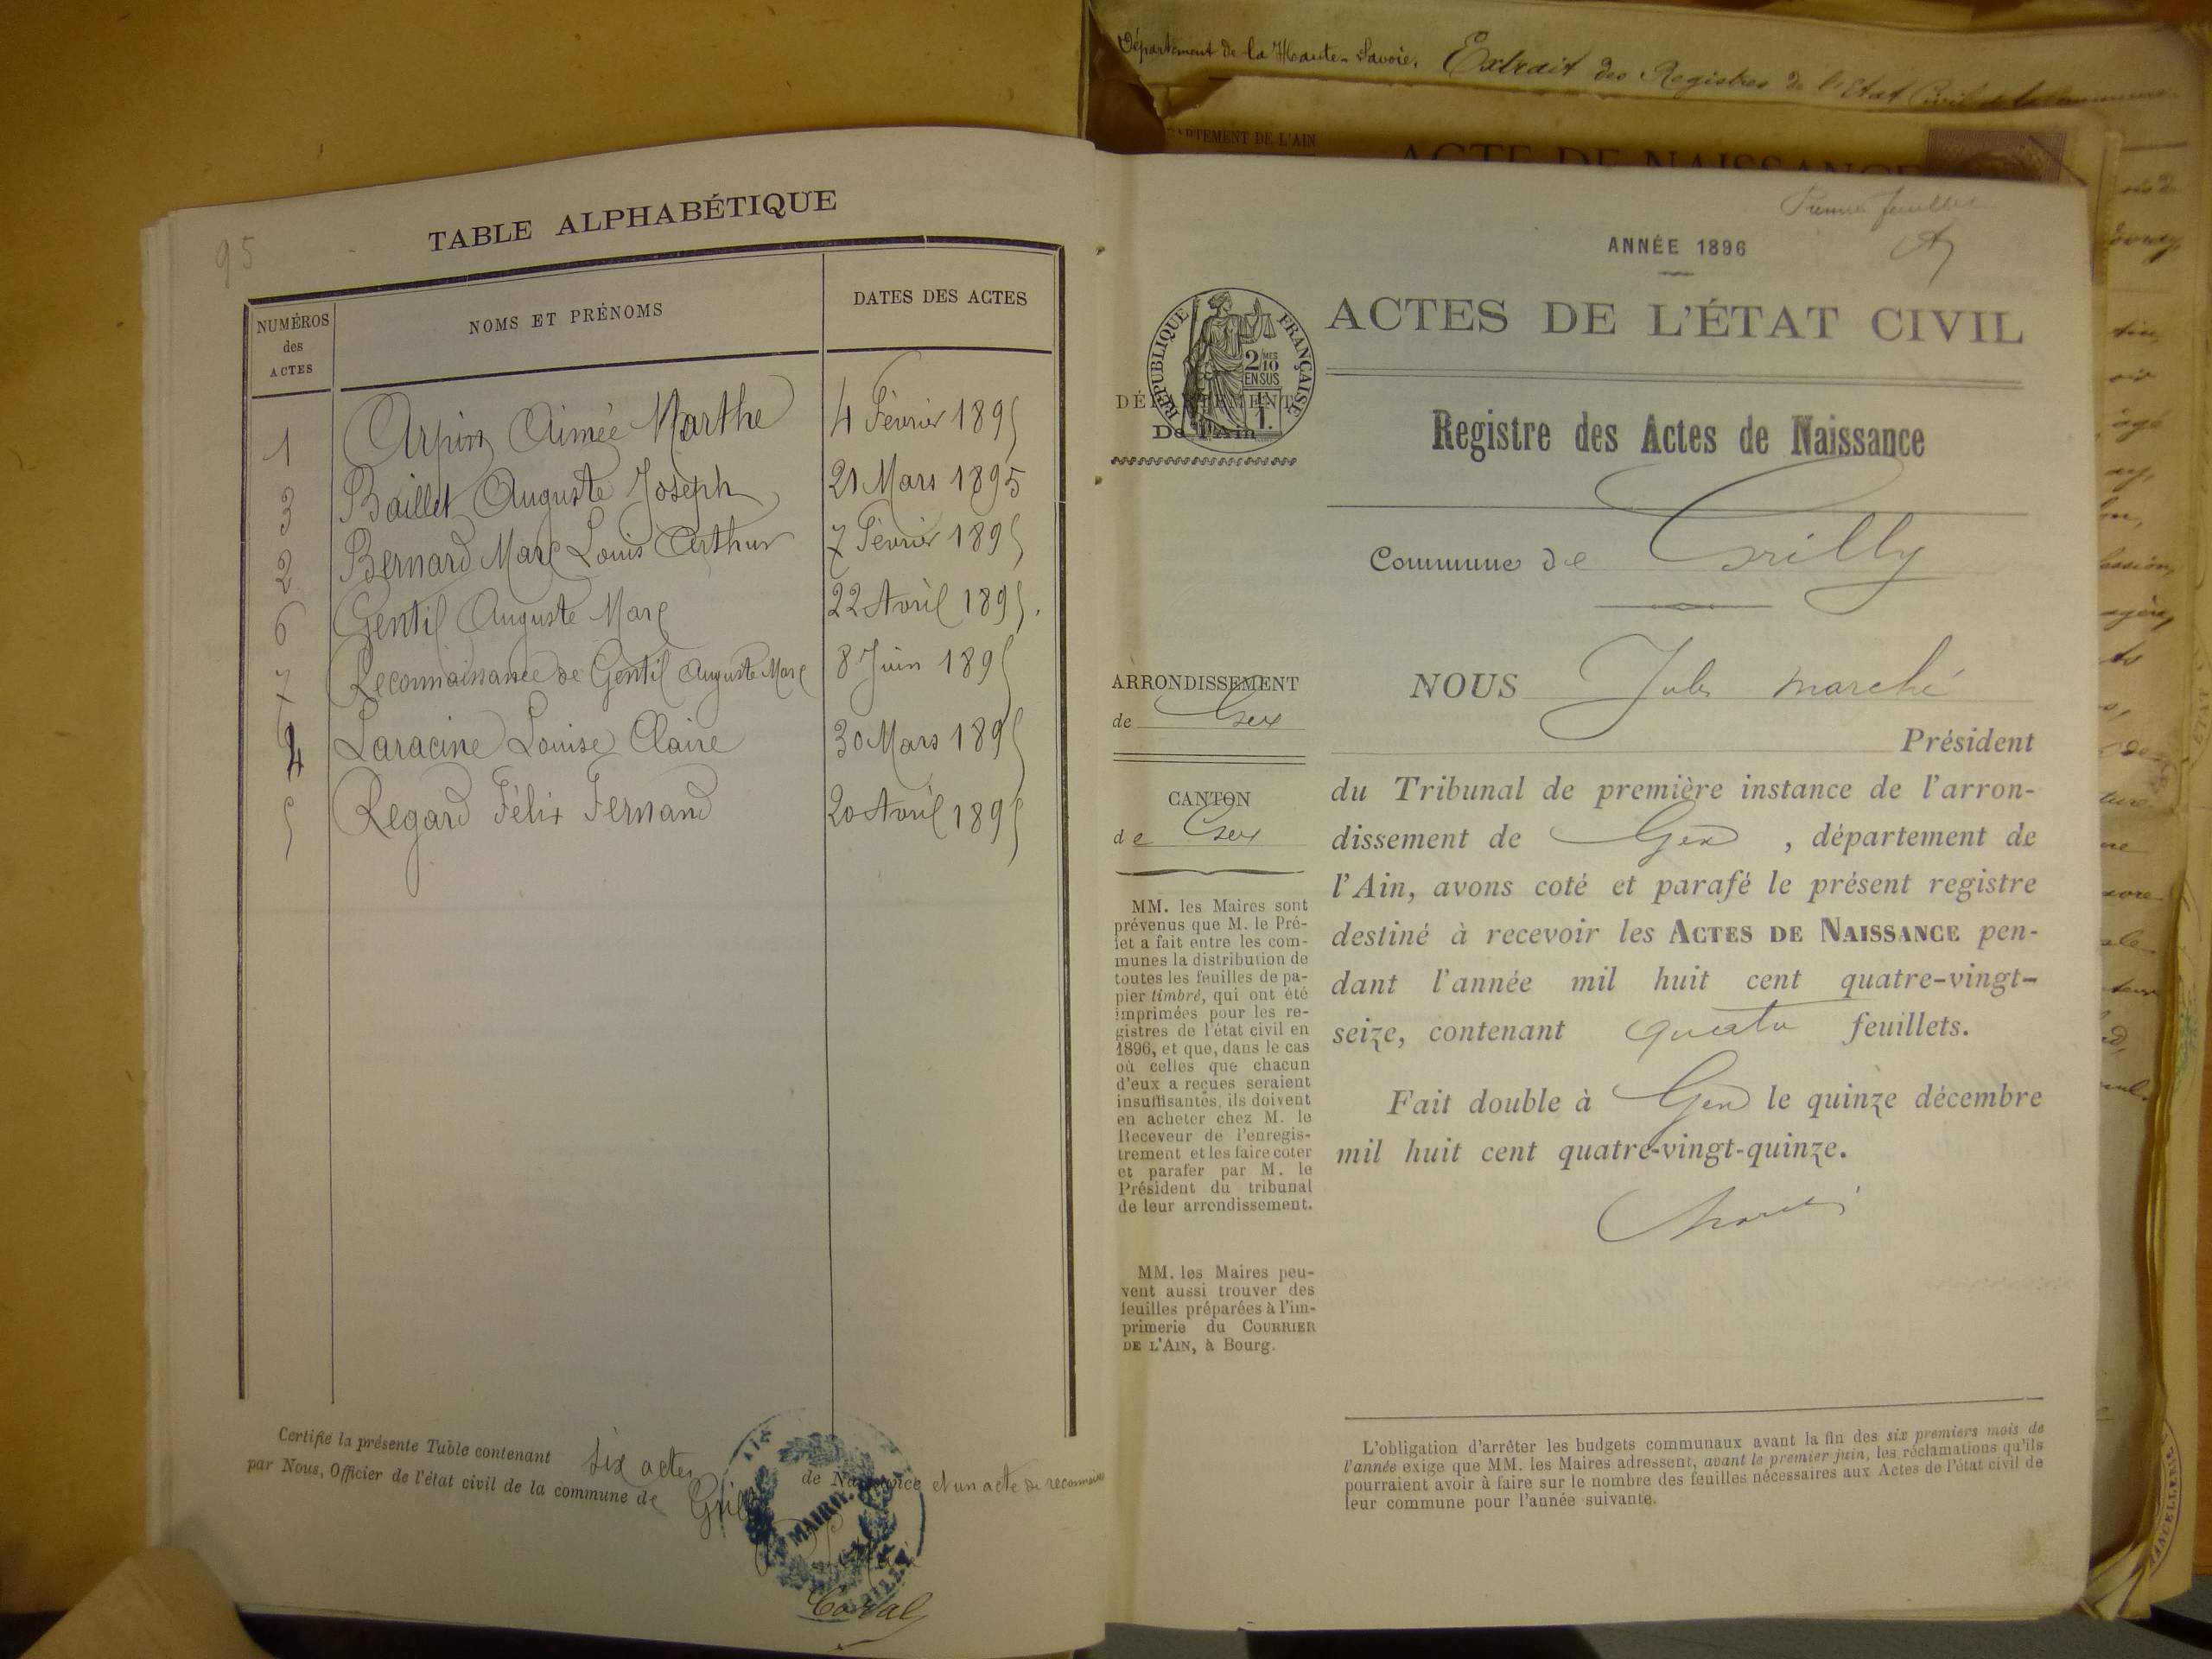 95
TABLE ALPHABÉTIQUE
NUMÉROS des ACTES
NOMS ET PRÉNOMS
DATES DES ACTES
1 Arpin Aimée Marthe 4 Février 1895
3 Baillet Auguste Joseph 21 Mars 1895
2 Bernard Marc Louis Arthur 7 Février 1895
6 Gentil Auguste Marc 22 Avril 1895.
7 Reconnaissance de Gentil Auguste Marc 8 Juin 1895
4 Laracine Louise Claire 30 Mars 1895
5 Regard Félix Fernand 20 Avril 1895
Certifié la présente Table contenant six actes de Naissance et un acte de
par Nous, Officier de l'état civil de la commune de Grilly
MAIRIE
Département de la Haute-Savoie. Extrait des Registres de l'Etat Civil de la
DÉPARTEMENT DE L'AIN
ACTE DE NAISSANCE
Premier feuillet
ANNÉE 1896
ACTES DE L'ÉTAT CIVIL
RÉPUBLIQUE FRANÇAISE
2/10 MES
EN SUS
DÉPARTEMENT
De l'Ain
Registre des Actes de Naissance
Commune de Grilly
ARRONDISSEMENT
de Gex
CANTON
de Gex
MM. les Maires sont
prévenus que M. le Pré-
fet a fait entre les com-
munes la distribution de
toutes les feuilles de pa-
pier timbré, qui ont été
imprimées pour les re-
gistres de l'état civil en
1896, et que, dans le cas
où celles que chacun
d'eux a reçues seraient
insuffisantes, ils doivent
en acheter chez M. le
Receveur de l'enregis-
trement et les faire coter
et parafer par M. le
Président du tribunal
de leur arrondissement.
MM. les Maires peu-
vent aussi trouver des
feuilles préparées à l'im-
primerie du COURRIER
DE L'AIN, à Bourg.
NOUS Jules Marché
Président
du Tribunal de première instance de l'arron-
dissement de Gex, département de
l'Ain, avons coté et parafé le présent registre
destiné à recevoir les ACTES DE NAISSANCE pen-
dant l'année mil huit cent quatre-vingt-
seize, contenant quatre feuillets.
Fait double à Gex le quinze décembre
mil huit cent quatre-vingt-quinze.
L'obligation d'arrêter les budgets communaux avant la fin des six premiers mois de
l'année exige que MM. les Maires adressent, avant le premier juin, les réclamations qu'ils
pourraient avoir à faire sur le nombre des feuilles nécessaires aux Actes de l'état civil de
leur commune pour l'année suivante.